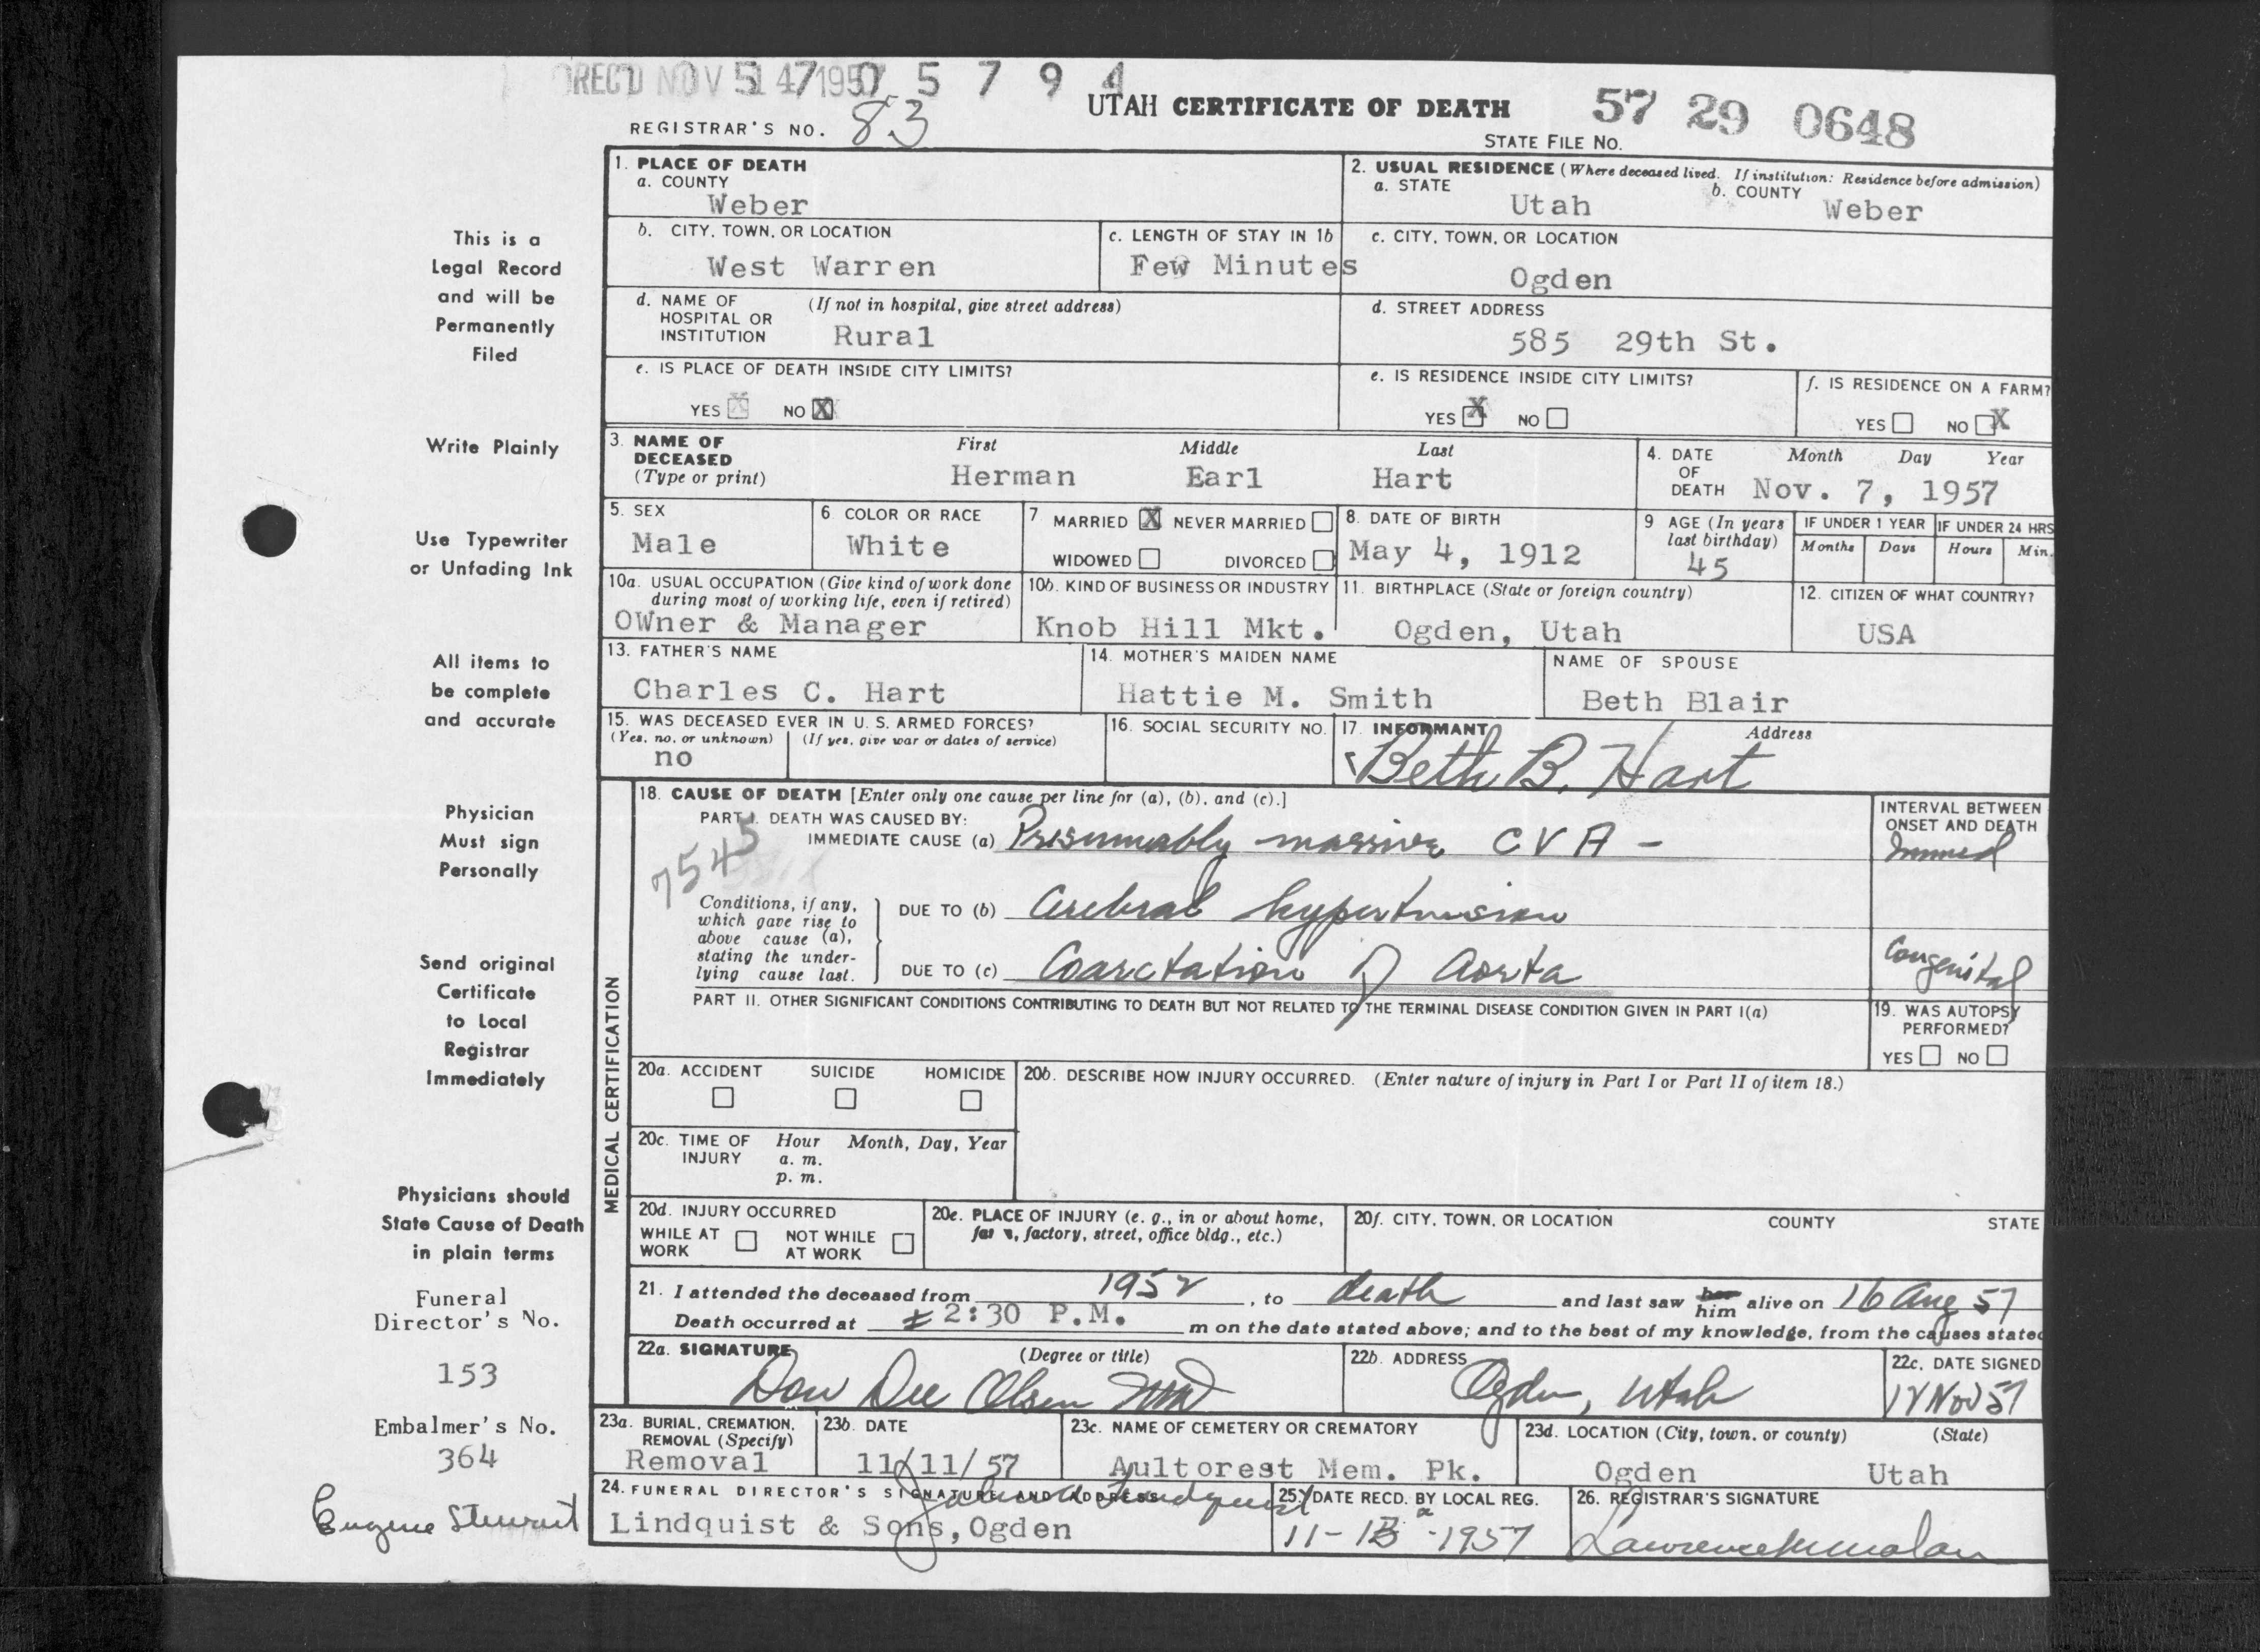 REC'D NOV 14 1957
57 05794
UTAH CERTIFICATE OF DEATH
57 29 0648
REGISTRAR'S NO. 83
STATE FILE NO.
1. PLACE OF DEATH
a. COUNTY
Weber
2. USUAL RESIDENCE (Where deceased lived. If institution: Residence before admission)
a. STATE
Utah
b. COUNTY
Weber
b. CITY, TOWN, OR LOCATION
West Warren
c. LENGTH OF STAY IN 1b
Few Minutes
c. CITY, TOWN, OR LOCATION
Ogden
d. NAME OF HOSPITAL OR INSTITUTION
(If not in hospital, give street address)
Rural
d. STREET ADDRESS
585 29th St.
e. IS PLACE OF DEATH INSIDE CITY LIMITS?
YES X NO X
e. IS RESIDENCE INSIDE CITY LIMITS?
YES X NO
f. IS RESIDENCE ON A FARM?
YES NO X
3. NAME OF DECEASED
(Type or print)
First Middle Last
Herman Earl Hart
4. DATE OF DEATH
Month Day Year
Nov. 7, 1957
5. SEX
Male
6 COLOR OR RACE
White
7 MARRIED X NEVER MARRIED
WIDOWED DIVORCED
8. DATE OF BIRTH
May 4, 1912
9 AGE (In years last birthday)
45
IF UNDER 1 YEAR
Months Days
IF UNDER 24 HRS
Hours Min.
10a. USUAL OCCUPATION (Give kind of work done during most of working life, even if retired)
OWner & Manager
10b. KIND OF BUSINESS OR INDUSTRY
Knob Hill Mkt.
11. BIRTHPLACE (State or foreign country)
Ogden, Utah
12. CITIZEN OF WHAT COUNTRY?
USA
13. FATHER'S NAME
Charles C. Hart
14. MOTHER'S MAIDEN NAME
Hattie M. Smith
NAME OF SPOUSE
Beth Blair
15. WAS DECEASED EVER IN U. S. ARMED FORCES?
(Yes, no, or unknown) (If yes, give war or dates of service)
no
16. SOCIAL SECURITY NO.
17. INFORMANT Address
Beth B. Hart
MEDICAL CERTIFICATION
18. CAUSE OF DEATH [Enter only one cause per line for (a), (b), and (c).]
PART I. DEATH WAS CAUSED BY:
IMMEDIATE CAUSE (a) Presumably massive CVA -
7545
Conditions, if any, which gave rise to above cause (a), stating the underlying cause last.
DUE TO (b) Cerebral hypertension
DUE TO (c) Coarctation of Aorta
INTERVAL BETWEEN ONSET AND DEATH
Immed
Congenital
PART II. OTHER SIGNIFICANT CONDITIONS CONTRIBUTING TO DEATH BUT NOT RELATED TO THE TERMINAL DISEASE CONDITION GIVEN IN PART I(a)
19. WAS AUTOPSY PERFORMED?
YES NO
20a. ACCIDENT SUICIDE HOMICIDE
20b. DESCRIBE HOW INJURY OCCURRED. (Enter nature of injury in Part I or Part II of item 18.)
20c. TIME OF INJURY
Hour Month, Day, Year
a. m.
p. m.
20d. INJURY OCCURRED
WHILE AT WORK NOT WHILE AT WORK
20e. PLACE OF INJURY (e. g., in or about home, farm, factory, street, office bldg., etc.)
20f. CITY, TOWN, OR LOCATION COUNTY STATE
21. I attended the deceased from 1952, to death and last saw her him alive on 16 Aug 57
Death occurred at ± 2:30 P.M. m on the date stated above; and to the best of my knowledge, from the causes stated
22a. SIGNATURE (Degree or title)
Don Dee Olsen MD
22b. ADDRESS
Ogden, Utah
22c. DATE SIGNED
12 Nov 57
23a. BURIAL, CREMATION, REMOVAL (Specify)
Removal
23b. DATE
11/11/57
23c. NAME OF CEMETERY OR CREMATORY
Aultorest Mem. Pk.
23d. LOCATION (City, town, or county) (State)
Ogden Utah
24. FUNERAL DIRECTOR'S SIGNATURE AND ADDRESS
Lindquist
Lindquist & Sons, Ogden
25. DATE RECD. BY LOCAL REG.
26. REGISTRAR'S SIGNATURE
This is a
Legal Record
and will be
Permanently
Filed
Write Plainly
Use Typewriter
or Unfading Ink
All items to
be complete
and accurate
Physician
Must sign
Personally
Send original
Certificate
to Local
Registrar
Immediately
Physicians should
State Cause of Death
in plain terms
Funeral
Director's No.
153
Embalmer's No.
364
Eugene Stewart